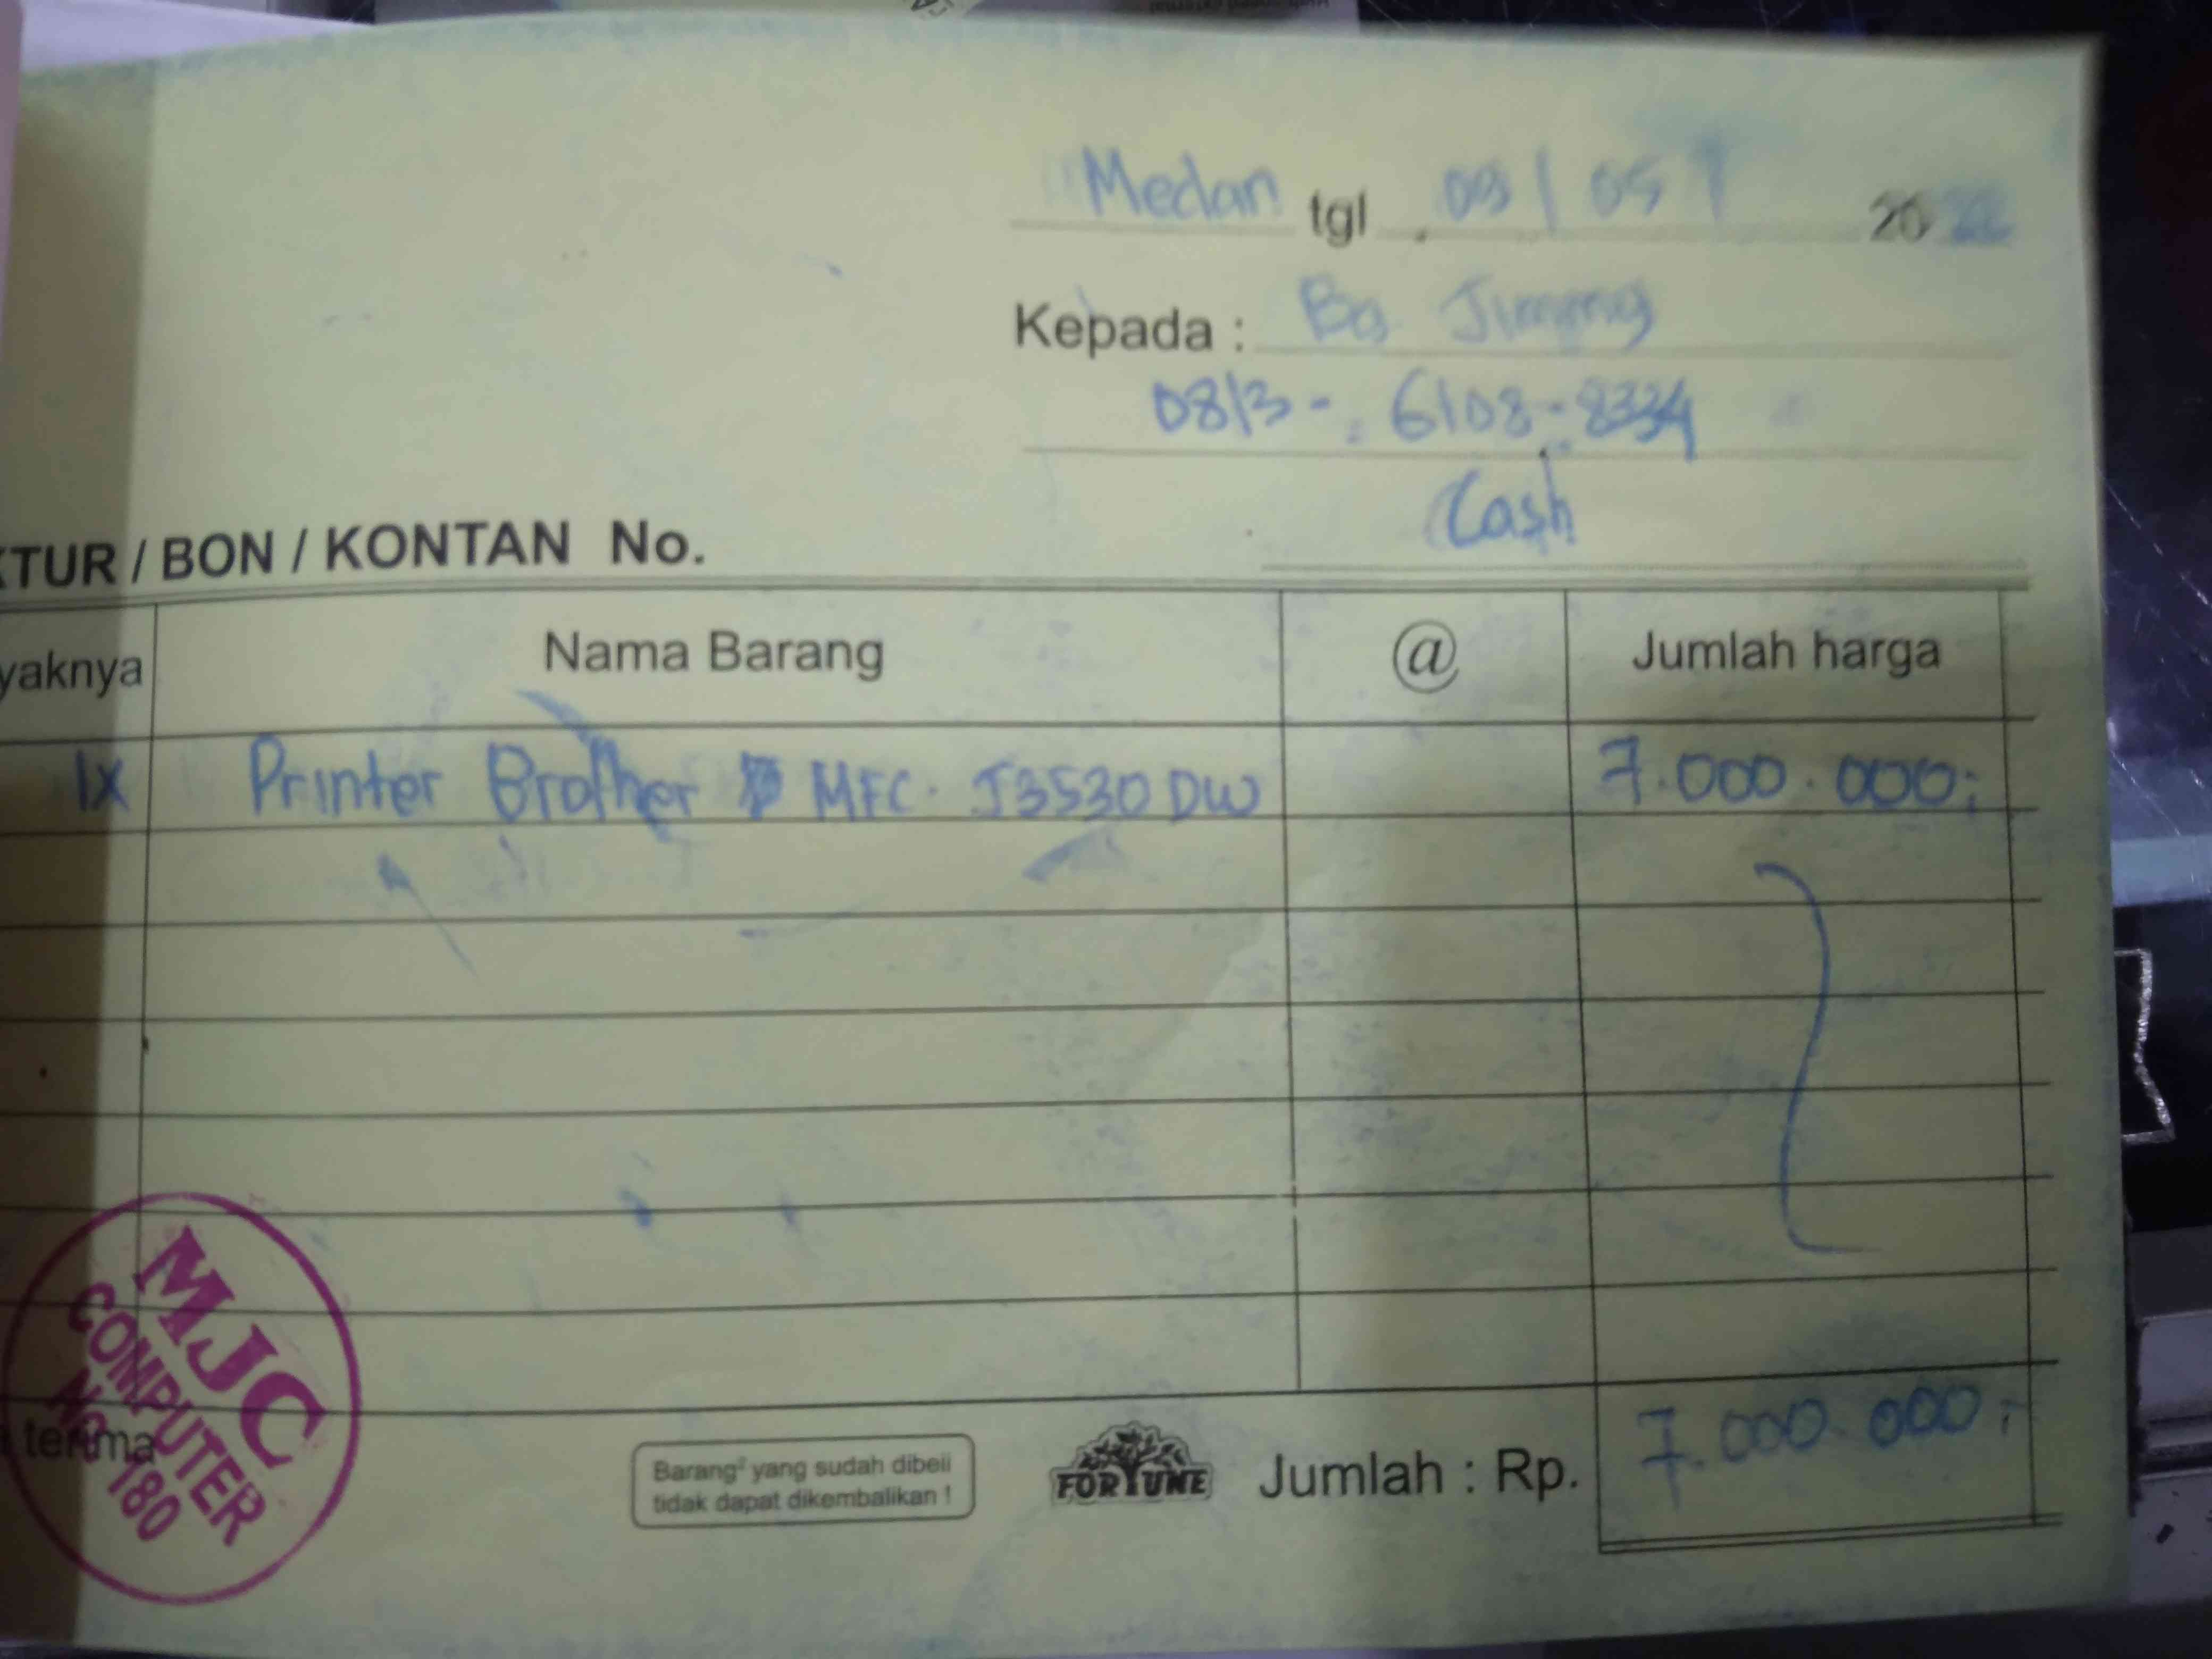 Medan tgl. 09 / 05 / 2022
Kepada : Bg. Jimmy
0813 - 6108 - 8334
Cash
KTUR / BON / KONTAN No.
yaknya Nama Barang @ Jumlah harga
1x Printer Brother MFC. J3530 DW 7.000.000;
MJC
COMPUTER
NO 180
terima
Barang² yang sudah dibeli
tidak dapat dikembalikan !
FORTUNE
Jumlah : Rp. 7.000.000;